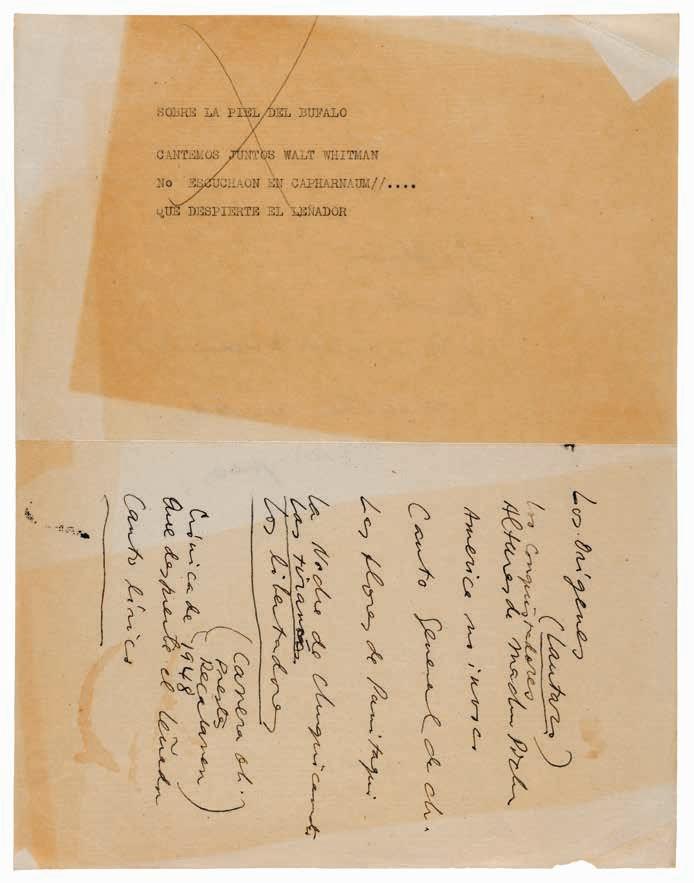 SOBRE LA PIEL DEL BUFALO
CANTEMOS JUNTOS WALT WHITMAN
No ESCUCHAON EN CAPHARNAUM//....
QUE DESPIERTE EL LEÑADOR
Los Orígenes
(Lautaro)
Los Conquistadores
Alturas de Macchu
America
Canto General de Chi.
Las flores de Punitaqui
La Noche de Chuquicamata
Las
Los libertadores
(Carrera
Poesta
Recabarren)
Crónica de 1948
Que despierte el leñador
Canto lírico